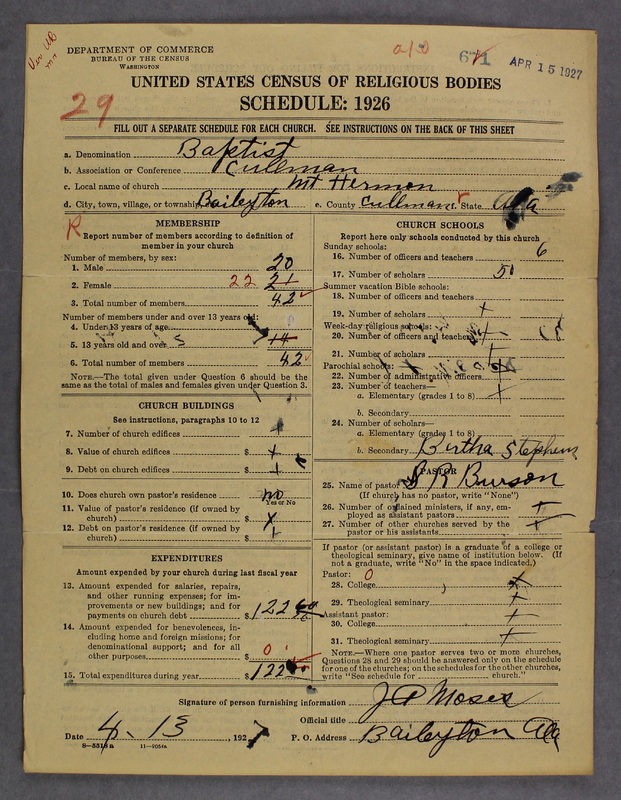 DEPARTMENT OF COMMERCE
BUREAU OF THE CENSUS
WASHINGTON
671 APR 15 1927
UNITED STATES CENSUS OF RELIGIOUS BODIES
SCHEDULE: 1926
29
FILL OUT A SEPARATE SCHEDULE FOR EACH CHURCH. SEE INSTRUCTIONS ON THE BACK OF THIS SHEET
a. Denomination Baptist
b. Association or Conference Cullman
c. Local name of church Mt Hermon
d. City, town, village, or township Baileyton e. County Cullman f. State Ala
R
MEMBERSHIP
Report number of members according to definition of
member in your church
Number of members, by sex:
1. Male 20
2. Female 22 21
3. Total number of members 42
Number of members under and over 13 years old:
4. Under 13 years of age
5. 13 years old and over 14
6. Total number of members 42
NOTE.—The total given under Question 6 should be the
same as the total of males and females given under Question 3.
CHURCH BUILDINGS
See instructions, paragraphs 10 to 12
7. Number of church edifices +
8. Value of church edifices $ +
9. Debt on church edifices $ +
10. Does church own pastor's residence no
Yes or No
11. Value of pastor's residence (if owned by
church) $ x
12. Debt on pastor's residence (if owned by
church) $ +
EXPENDITURES
Amount expended by your church during last fiscal year
13. Amount expended for salaries, repairs,
and other running expenses; for im-
provements or new buildings; and for
payments on church debt $ 122
14. Amount expended for benevolences, in-
cluding home and foreign missions; for
denominational support; and for all
other purposes $ 0
15. Total expenditures during year $ 122
CHURCH SCHOOLS
Report here only schools conducted by this church
Sunday schools:
16. Number of officers and teachers 6
17. Number of scholars 50
Summer vacation Bible schools:
18. Number of officers and teachers
19. Number of scholars +
Week-day religious schools:
20. Number of officers and teachers +
21. Number of scholars +
Parochial schools:
22. Number of administrative officers
23. Number of teachers—
a. Elementary (grades 1 to 8) +
b. Secondary
24. Number of scholars—
a. Elementary (grades 1 to 8)
b. Secondary Birtha Stephens
PASTOR
25. Name of pastor Burson
(If church has no pastor, write "None")
26. Number of ordained ministers, if any, em-
ployed as assistant pastors +
27. Number of other churches served by the
pastor or his assistants +
If pastor (or assistant pastor) is a graduate of a college or
theological seminary, give name of institution below. (If
not a graduate, write "No" in the space indicated.)
Pastor: 0
28. College x
29. Theological seminary +
Assistant pastor:
30. College +
31. Theological seminary +
NOTE.—Where one pastor serves two or more churches,
Questions 28 and 29 should be answered only on the schedule
for one of the churches; on the schedules for the other churches,
write "See schedule for church."
Signature of person furnishing information J A Moses
Official title
Date 4-13, 1927 P. O. Address Baileyton Ala
8—5518a 11—9054a